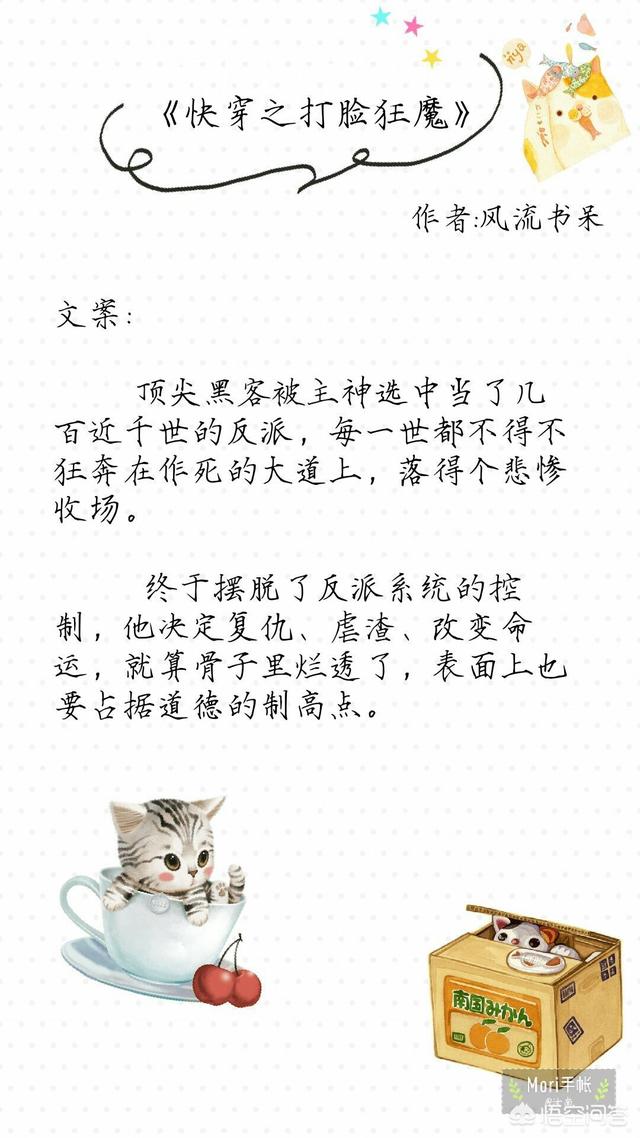 niya
《快穿之打脸狂魔》
作者:风流书呆
文案:
顶尖黑客被主神选中当了几
百近千世的反派，每一世都不得不
狂奔在作死的大道上，落得个悲惨
收场。
终于摆脱了反派系统的控
制，他决定复仇、虐渣、改变命
运，就算骨子里烂透了，表面上也
要占据道德的制高点。
南国みかん
Mori手帐
悟空问答